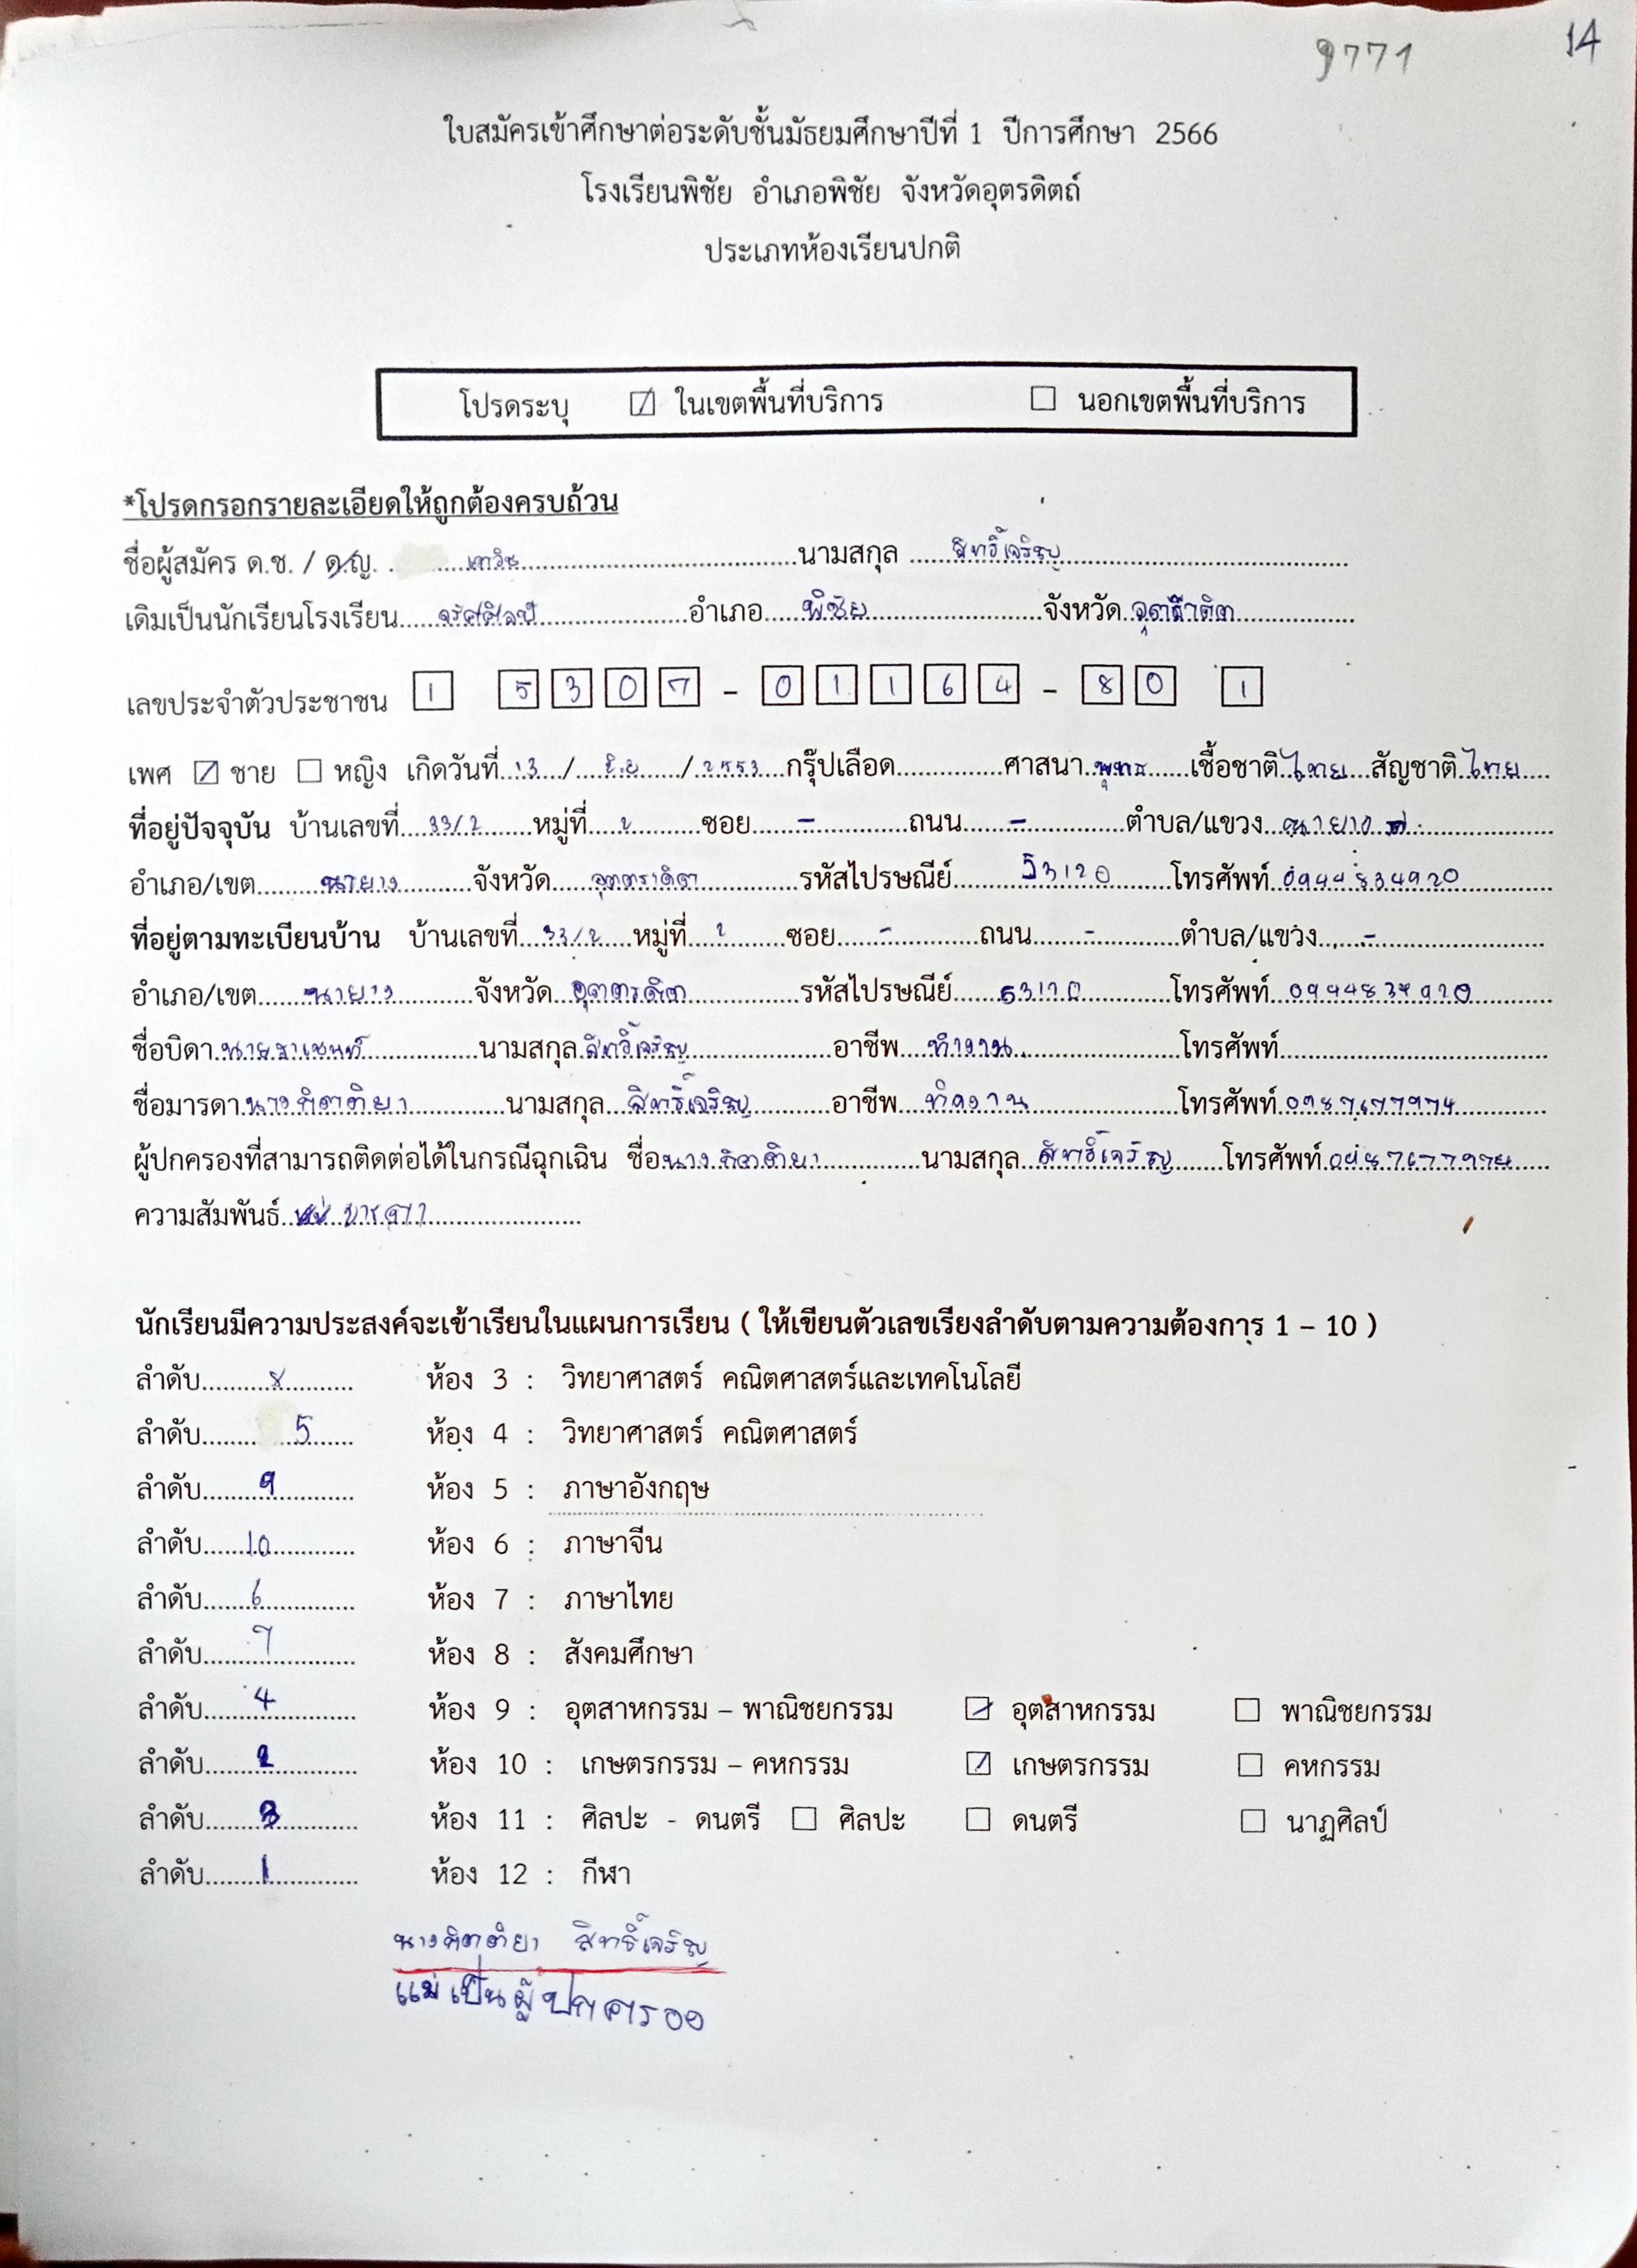 9771 14
ใบสมัครเข้าศึกษาต่อระดับชั้นมัธยมศึกษาปีที่ 1 ปีการศึกษา 2566
โรงเรียนพิชัย อำเภอพิชัย จังหวัดอุตรดิตถ์
ประเภทห้องเรียนปกติ
โปรดระบุ ในเขตพื้นที่บริการ นอกเขตพื้นที่บริการ
*โปรดกรอกรายละเอียดให้ถูกต้องครบถ้วน
ชื่อผู้สมัคร ด.ช. / ด.ญ. นามสกุล สิทธิ์เจริญ
เดิมเป็นนักเรียนโรงเรียน จรัสศิลป์ อำเภอ พิชัย จังหวัด
เลขประจำตัวประชาชน 1 5307 - 01164 - 80 1
เพศ ชาย หญิง เกิดวันที่ 13 / มิ.ย / 2553 กรุ๊ปเลือด ศาสนา พุทธ เชื้อชาติ ไทย สัญชาติ ไทย
ที่อยู่ปัจจุบัน บ้านเลขที่ 33/2 หมู่ที่ 2 ซอย - ถนน - ตำบล/แขวง
อำเภอ/เขต นายาง จังหวัด รหัสไปรษณีย์ 53120 โทรศัพท์ 0944834920
ที่อยู่ตามทะเบียนบ้าน บ้านเลขที่ 33/2 หมู่ที่ 2 ซอย - ถนน - ตำบล/แขวง -
อำเภอ/เขต นายาง จังหวัด อุตตรดิต รหัสไปรษณีย์ 53120 โทรศัพท์ 0944834920
ชื่อบิดา นามสกุล สิทธิ์เจริญ อาชีพ ทำงาน โทรศัพท์
ชื่อมารดา นางกิตติยา นามสกุล สิทธิ์เจริญ อาชีพ ทำงาน โทรศัพท์ 0987677974
ผู้ปกครองที่สามารถติดต่อได้ในกรณีฉุกเฉิน ชื่อ นางกิตติยา นามสกุล สิทธิ์เจริญ โทรศัพท์ 0987677974
ความสัมพันธ์ มารดา
นักเรียนมีความประสงค์จะเข้าเรียนในแผนการเรียน ( ให้เขียนตัวเลขเรียงลำดับตามความต้องการ 1 – 10 )
ลำดับ 8 ห้อง 3 : วิทยาศาสตร์ คณิตศาสตร์และเทคโนโลยี
ลำดับ 5 ห้อง 4 : วิทยาศาสตร์ คณิตศาสตร์
ลำดับ 9 ห้อง 5 : ภาษาอังกฤษ
ลำดับ 10 ห้อง 6 : ภาษาจีน
ลำดับ 6 ห้อง 7 : ภาษาไทย
ลำดับ 7 ห้อง 8 : สังคมศึกษา
ลำดับ 4 ห้อง 9 : อุตสาหกรรม – พาณิชยกรรม อุตสาหกรรม พาณิชยกรรม
ลำดับ 2 ห้อง 10 : เกษตรกรรม – คหกรรม เกษตรกรรม คหกรรม
ลำดับ 3 ห้อง 11 : ศิลปะ - ดนตรี ศิลปะ ดนตรี นาฏศิลป์
ลำดับ 1 ห้อง 12 : กีฬา
นางกิตติยา สิทธิ์เจริญ
แม่เป็นผู้ปกครอง